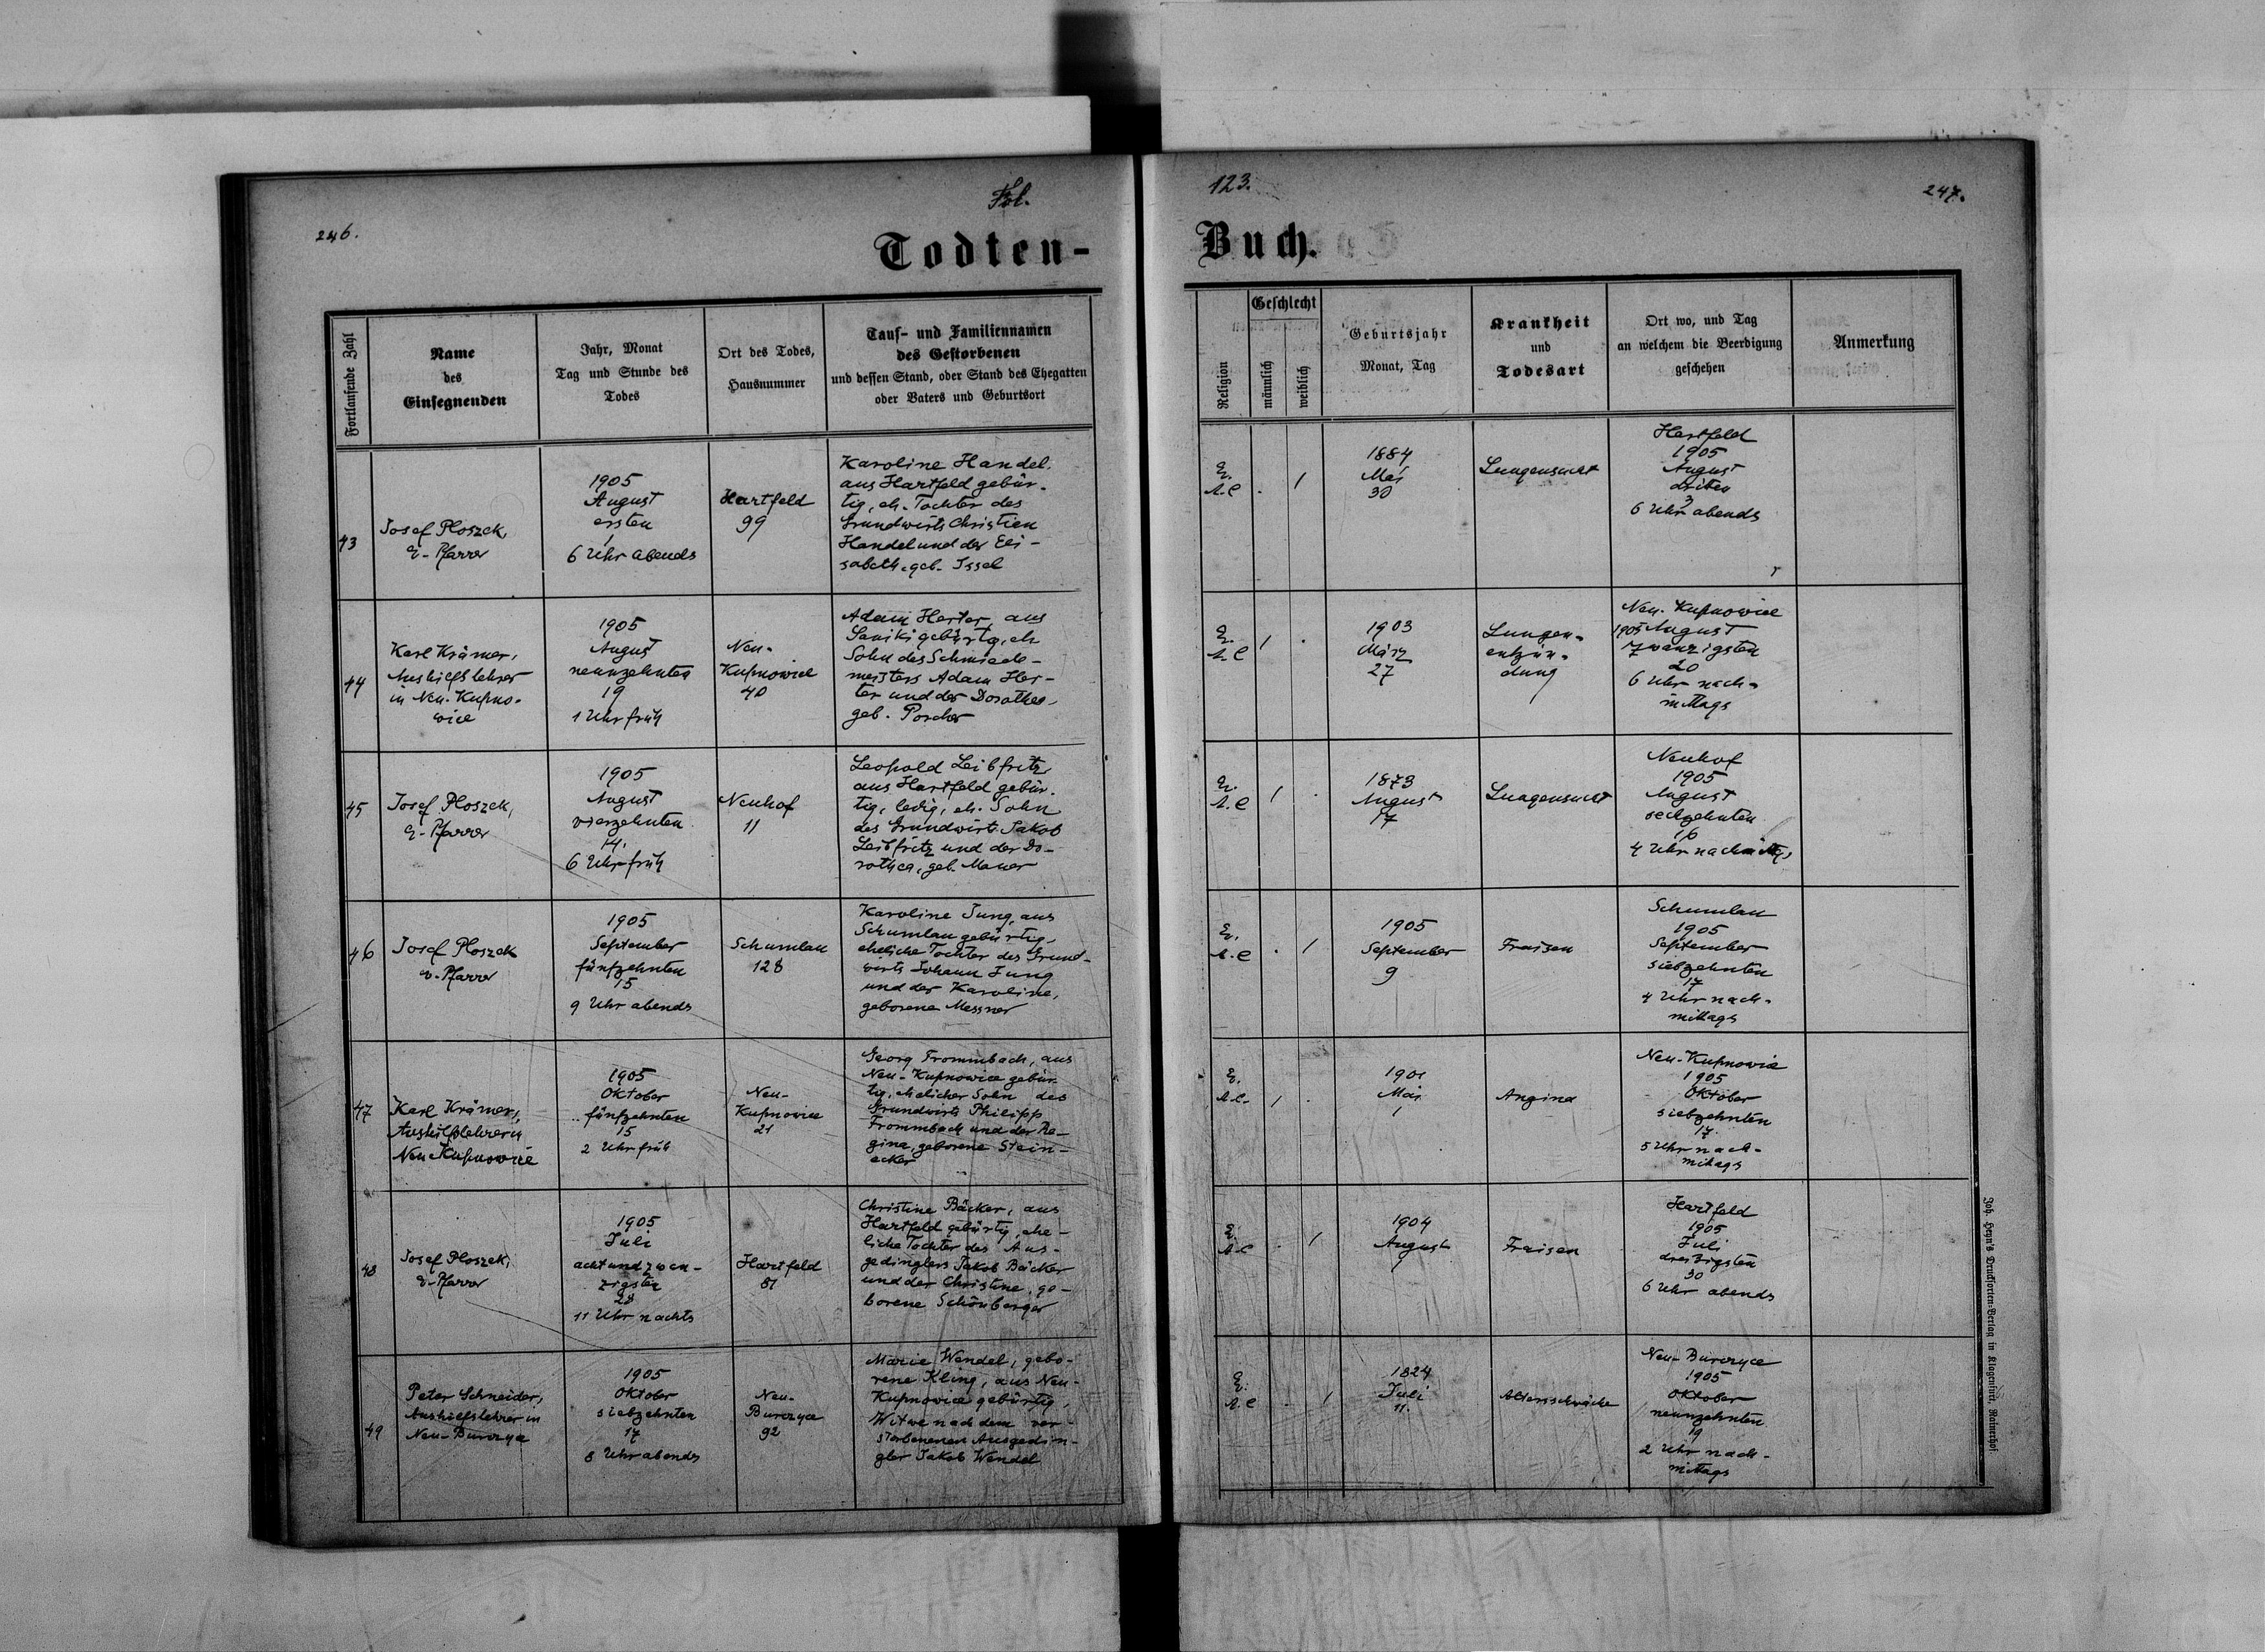 246.
Fol.
Todten-
Fortlaufende Zahl
Name
des
Einsegnenden
Jahr, Monat
Tag und Stunde des
Todes
Ort des Todes,
Hausnummer
Tauf- und Familiennamen
des Gestorbenen
und dessen Stand, oder Stand des Ehegatten
oder Vaters und Geburtsort
43
Josef Ploszek,
E.-Pfarrer
1905
August
ersten
1
6 Uhr abends
Hartfeld
99
Karoline Handel,
aus Hartfeld gebür-
tig, eh. Tochter des
Grundwirts Christien
Handel und der Eli-
sabeth, geb. Issel
44
Karl Krämer,
Aushilfslehrer
in Neu-Kupno-
wice
1905
August
neunzehnten
19
1 Uhr früh
Neu-
Kupnowice
40
Adam Herter, aus
Saniki gebürtg, eh
Sohn des Schmiede-
meisters Adam Her-
ter und der Dorothea,
geb. Porcher
45
Josef Ploszek,
E.-Pfarrer
1905
August
vierzehnten
14.
6 Uhr früh
Neuhof
11
Leopold Leibfritz
aus Hartfeld gebür-
tig, ledig, eh. Sohn
des Grundwirts Jakob
Leibfritz und der Do-
rothea, geb. Mauer
46
Josef Ploszek
E.-Pfarrer
1905
September
fünfzehnten
15
9 Uhr abends
Schumlau
128
Karoline Jung, aus
Schumlau gebürtig,
eheliche Tochter des Grund-
wirts Johann Jung
und der Karoline,
geborene Messner
47
Karl Krämer,
Aushilfslehrer in
Neu Kupnowice
1905
Oktober
fünfzehnten
15
2 Uhr früh
Neu-
Kupnowice
21
Georg Frommbach, aus
Neu-Kupnowice gebür-
tig, ehelicher Sohn des
Grundwirts Philipp
Frommbach und der Re-
gina, geborene Stein-
acker
48
Josef Ploszek,
E.-Pfarrer
1905
Juli
achtundzwan-
zigsten
28
11 Uhr nachts
Hartfeld
81
Christine Bäcker, aus
Hartfeld gebürtig, ehe-
liche Tochter des Aus-
gedinglers Jakob Bäcker
und der Christine, ge-
borene Schönberger
49
Peter Schneider,
Aushilfslehrer in
Neu-Burczyce
1905
Oktober
siebzehnten
17
8 Uhr abends
Neu-
Burczyce
92
Marie Wendel, gebo-
rene Kling, aus Neu-
Kupnowice gebürtig,
Witwe nach dem ver-
storbenenen Ausgedin-
gler Jakob Wendel
123.
247.
Buch.
Religion
Geschlecht
männlich
weiblich
Geburtsjahr
Monat, Tag
Krankheit
und
Todesart
Ort wo, und Tag
an welchem die Beerdigung
geschehen
Anmerkung
E.
A.C
.
1
1884
Mai
30
Lungensucht
Hartfeld
1905
August
driten
3
6 Uhr abends
E.
A.C
1
.
1903
März
27
Lungen-
entzün-
dung
Neu-Kupnowice
1905 August
zwanzigsten
20
6 Uhr nach-
mittags
E.
A.C
1
.
1873
August
17
Lungensucht
Neuhof
1905
August
sechzehnten
16
4 Uhr nachmittgs
E.
A.C
.
1
1905
September
9
Fraisen
Schumlau
1905
September
siebzehnten
17
4 Uhr nach-
mittags
E.
A.C.
1
.
1901
Mai
1
Angina
Neu-Kupnowice
1905
Oktober
siebzehnten
17.
5 Uhr nach-
mittags
E.
A.C
.
1
1904
August
7
Fraisen
Hartfeld
1905
Juli
dreizigsten
30
6 Uhr abends
E.
A.C
.
1
1824
Juli
11.
Altersschwäche
Neu-Burczyce
1905
Oktober
neunzehnten
19
2 Uhr nach-
mittags
Joh. Heyn's Drucksorten-Verlag in Klagenfurt, Rainerhof.